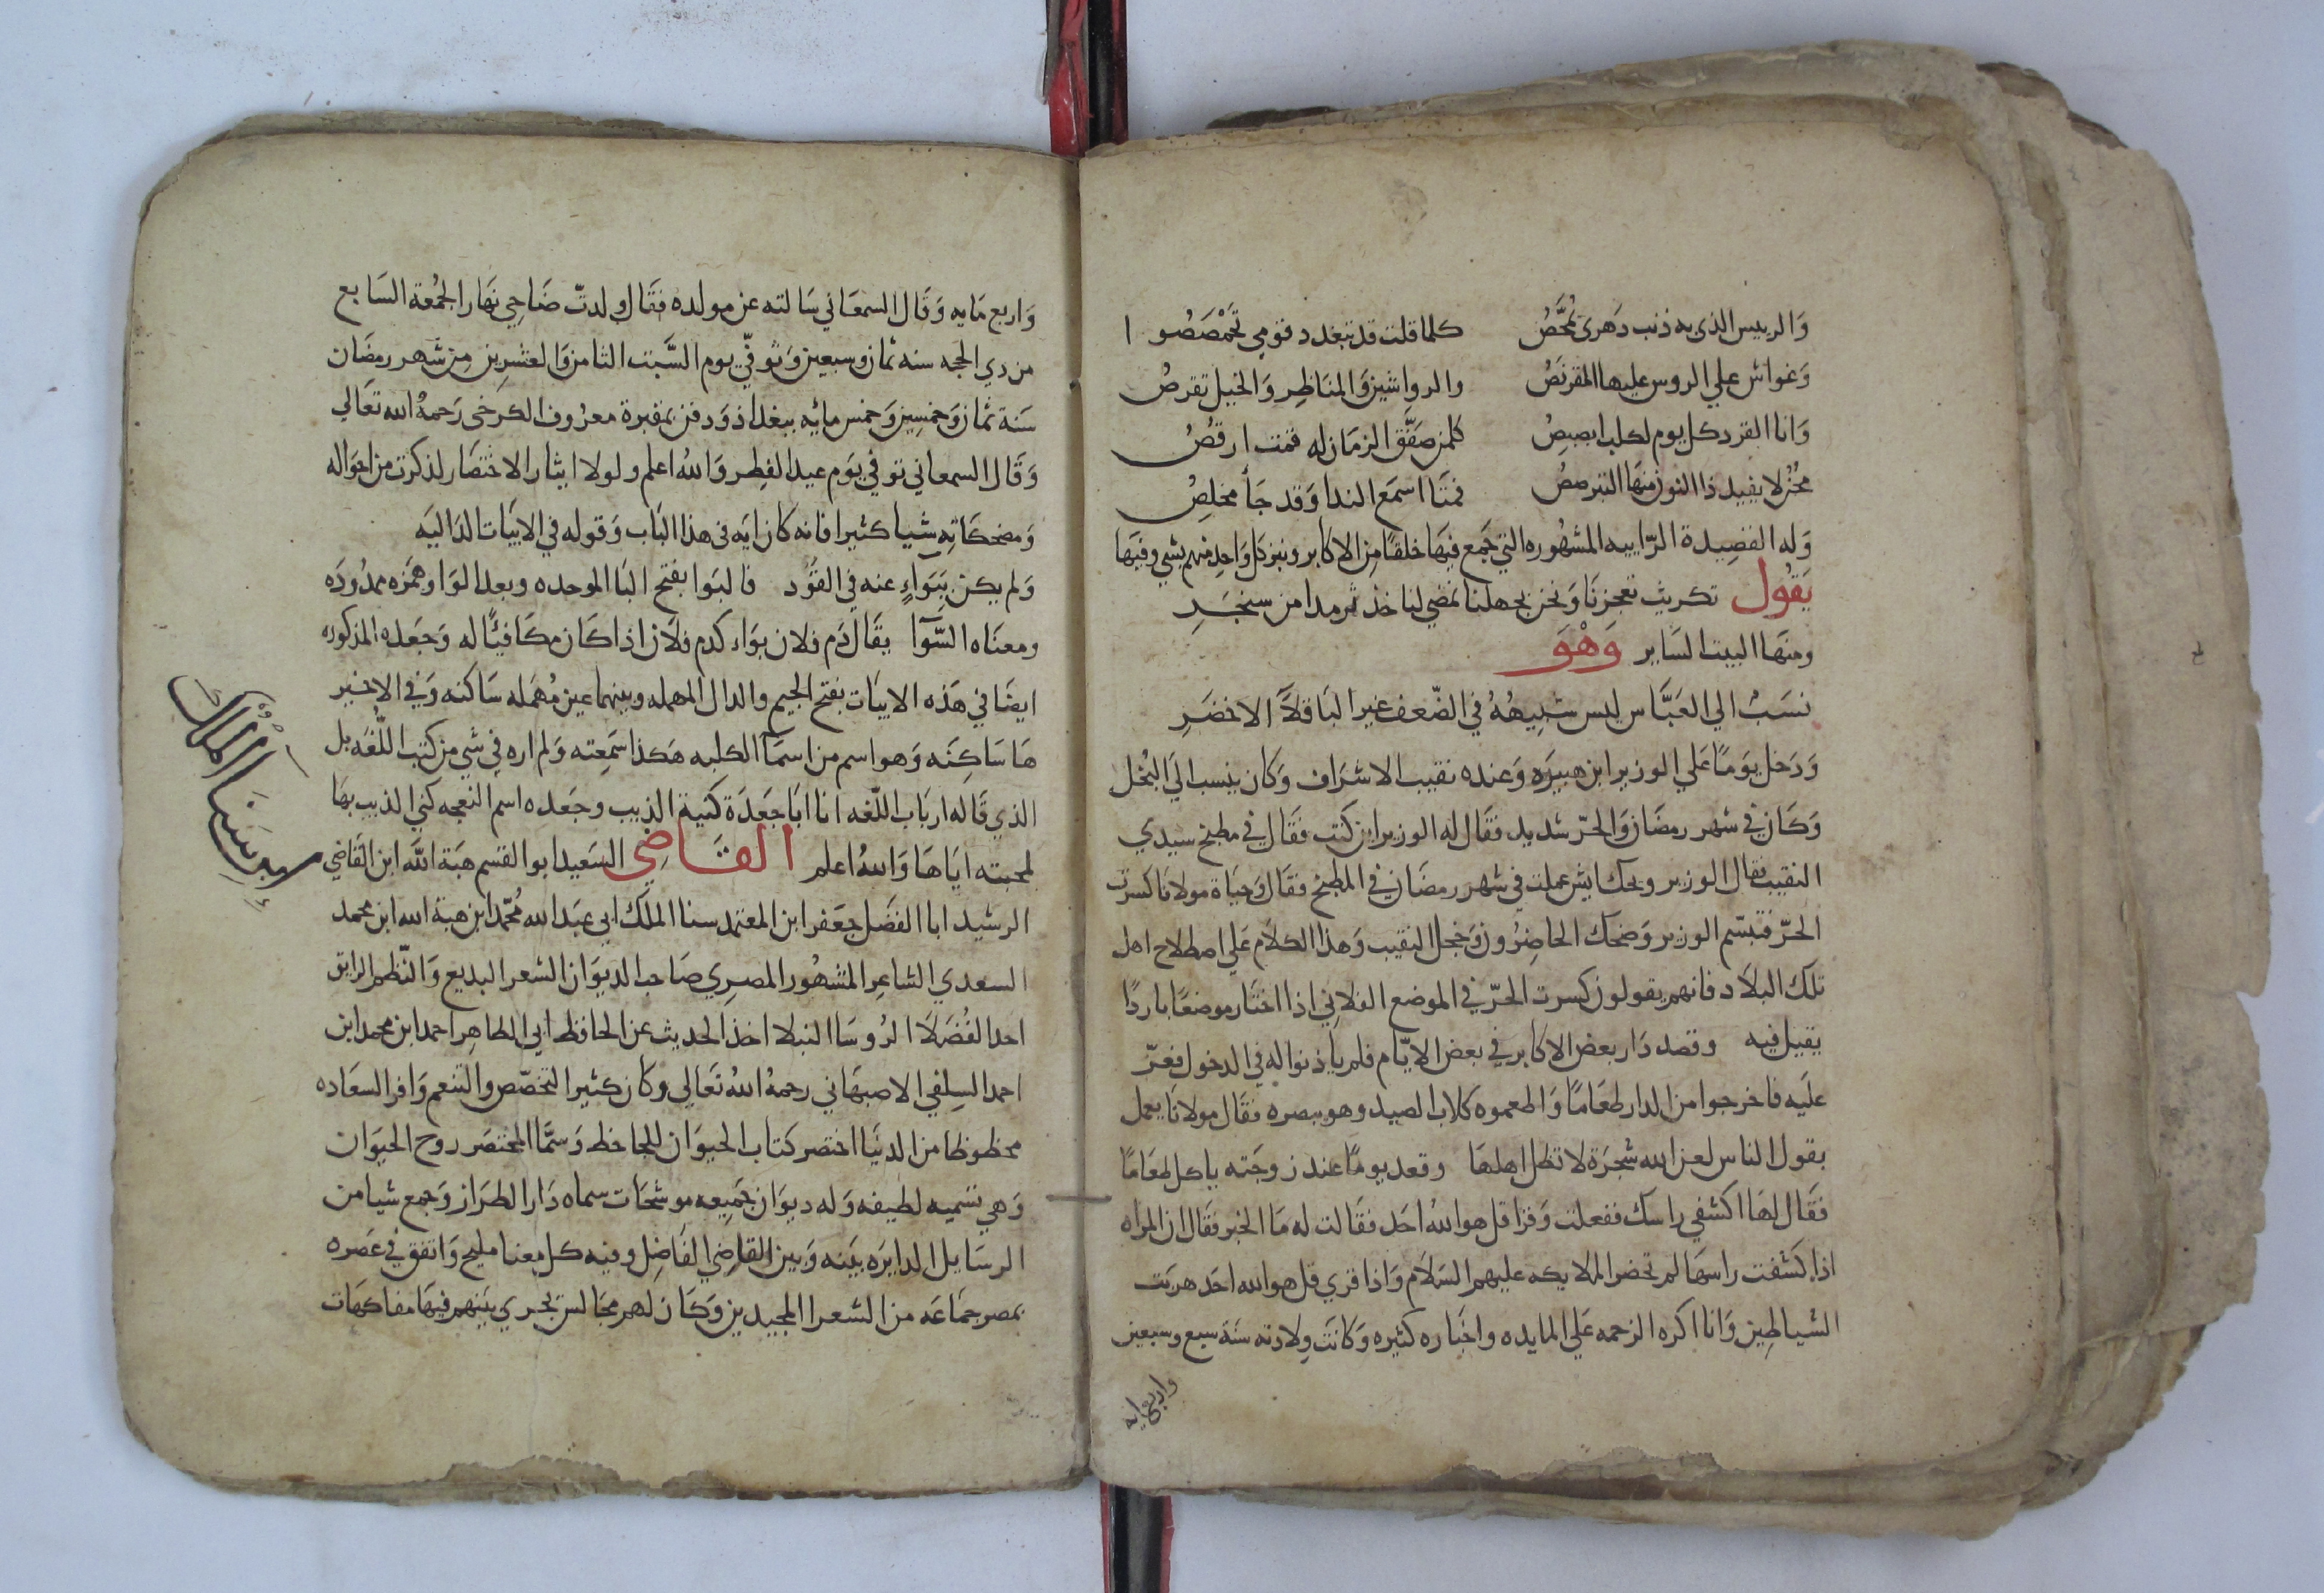 وَالرييس الذي به ذنب دَهري يُمحَّصُ كلما قلت قد تبغدد قومي تَحَمْصَصُوا
وَغواش علي الروس عليها المقرنصُ والرواشين وَالمنَاظِر وَالخيل تقرصُ
وَانا القرد كل يوم لكلب ابصبصُ كلمن صَفَّق الزمَان له قمت ارقصُ
مُحَزٌ لا يفيد ذا النون منهَا التبرمصُ فمتَا اسمَع الندا وَقد جَا مخلِصُ
وَله القصِيدة الرّاييه المشهُوره التي جَمع فيهَا خلقًا مِن الاكابر ونبز كل وَاحِد منهم بشي وفيهَا
يَقُول تكريت تعجزنَا وَنحن بجهلنا نمضي لناخذ ترمدا من سنجَرِ
ومنهَا البيت السَاير وَهْوَ
نسَبٌ الي العَبَّاس ليس شبيهُهُ في الضّعف غير البَاقلّا الاخضَرِ
وَدَخل يَومًا عَلي الوزير ابن هبيرَه وَعنده نقيب الاشرَاف وَكان ينسب الي البُخل
وَكَان في شهر رمضَان وَالحرّ شديد فقَال له الوزير اين كنت فقَال في مطبخ سيدي
النقيب فقال الوزير ويحك ايش عملت في شهر رمضَان في المطبخ فقَال وَحيَاة مولانَا كسرت
الحَرّ فتبسّم الوزير وَضحك الحَاضِرُون وَخجل النقيب وَهذا الكلام عَلي اصطلاح اهل
تلك البلاد فانهم يقولون كسرت الحَرّ في الموضع الفلاني اذا اختَار موضعًا باردًا
يقيل فيه وقصد دَار بعض الاكابر في بعض الايّام فلم ياذنوا له في الدخول فعزّ
علَيه فاخرجوا من الدار طعَامًا وَاطعموه كلاب الصيد وهو يبصره فقَال مولانَا يعمل
بقول الناس لعن الله شجَرَة لا تظل اهلهَا وقعد يومًا عند زوجَته ياكل طعَامًا
فقَال لهَا اكشفي راسك ففعلت وَقرا قل هو اللهُ احَد فقَالت له مَا الخبر فقَال ان المراه
اذا كَشفت راسهَا لم تحضر الملايكه عليهم السَلام وَاذا قري قل هو الله احَد هربَت
الشيَاطِين وَانا اكره الزحمه عَلي المايده واخبَاره كثيره وَكانَت وِلادته سَنَة سبع وسبعين
واربعمايه
وَاربع مَايه وَقَال السمعَاني سَالته عن مولده فقَال ولدتّ ضَاحِي نَهَار الجُمعَة السَابع
من دي الحجه سنه ثمان وسبعين وَتوفّي يوم السَّبت الثامن وَالعشرِين مِن شَهر رمضَان
سَنَة ثمان وَخمسِين وَخمس مائيه ببغداذ وَدفن بمقبرة معرُوف الكرخى رَحمهُ الله تعَالي
وَقَال السمعاني توفي يَوم عيد الفِطر وَاللهُ اعلم ولولا ايثار الاختصَار لذكرت من احوَاله
وَمضحكَاتِه شَيا كثيرا فانه كان ايَه في هذا البَاب وَقوله في الابيَات الدَاليَه
وَلم يكن بِبَوَاءٍ عنه في القوَد فالبَوا بفتح البَا الموحده وبعد الوَاو همَزه ممدُودَه
ومعنَاه السَّوَآ يقَال دَم فلان بوَاء كدم فلَان اذا كَان مكَافيًا له وَجَعده المذكوره
ايضًا في هَذه الابيَات بفتح الجيم والدال المهمله وبينهما عين مُهمَله سَاكنه وَفي الاخير
هَا سَاكِنَه وَهو اسم من اسمَآ الكلبه هَكذا سَمِعته وَلم اره في شي من كتب اللّغَه بل
الذي قَاله اربَاب اللّغه انا ابَا جَعدَة كنية الذيب وجَعده اسم النعجه كني الذيب بهَا
لمحبته ايَاهَا وَاللهُ اعلم القَاضِي السَعيد ابو القسم هبَة الله ابن القاضي
الرشيد ابا الفضَل جعَفر ابن المعتمد سنا الملك ابي عبَد الله مُحمّد ابن هبَة الله ابن محمد
السعدي الشاعِر المشهُور المصرِي صَاحب الديوَان الشعر البديع وَالنّظم الرايق
احد الفُضَلا الرُوسَا النبلا اخذ الحديث عَن الحَافظ ابي الطاهِر احمد ابن محمد ابن
احمد السِلفي الاصبهَاني رحمهُ اللهُ تَعَالي وكَان كثير التخصّص والتنعم وَافر السعَاده
محظوظا من الدنيَا اختصر كتاب الحَيوَان للجاحظ وَسمَّا المختصَر روح الحيَوان
وَهي تسميه لطيفه وَله ديوَان جَميِعه موشحَات سماه دَار الطرَاز وَجمع شيا من
الرسَايل الدايرَه بَينه وَبين القاضِي الفَاضِل وفيه كل معنا مليح وَاتفق في عَصره
بمصر جمَاعَه من الشعرا المجيدين وَكَان لهم مجَالس تجري بيَنهم فيهَا مفاكهَات
ابن سَنَا المُلك